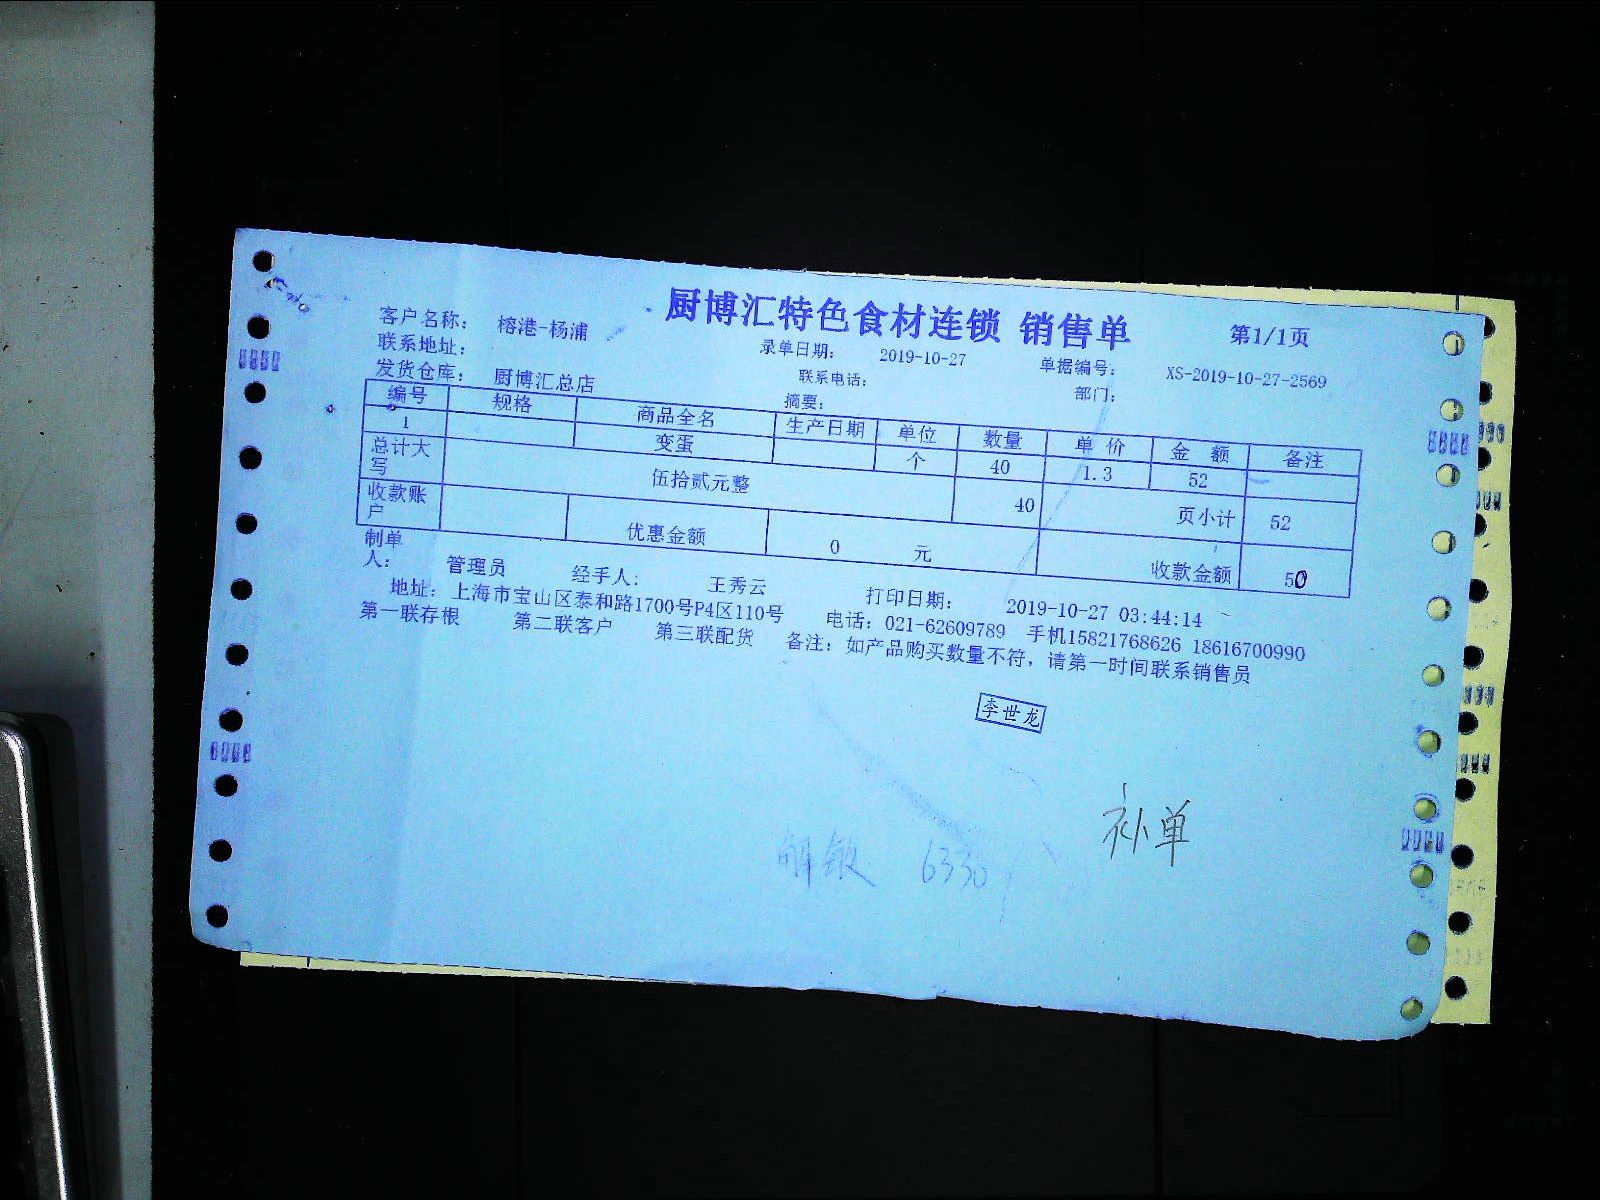 厨博汇特色食材连锁 销售单 第1/1页
客户名称： 榕港-杨浦 录单日期： 2019-10-27 单据编号： XS-2019-10-27-2569
联系地址： 联系电话： 部门：
发货仓库： 厨博汇总店 摘要：
编号 规格 商品全名 生产日期 单位 数量 单 价 金 额 备注
1 变蛋 个 40 1.3 52
总计大写 伍拾贰元整 40 页小计 52
收款账户 优惠金额 0 元 收款金额 50
制单人： 管理员 经手人： 王秀云 打印日期： 2019-10-27 03:44:14
地址：上海市宝山区泰和路1700号P4区110号 电话：021-62609789 手机15821768626 18616700990
第一联存根 第二联客户 第三联配货 备注：如产品购买数量不符，请第一时间联系销售员
李世龙
补单
6330